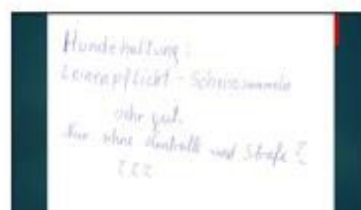 Hundehaltung:
Leinenpflicht - Scheisse sammeln
sehr gut.
Nur ohne Kontrolle und Strafe ?
???